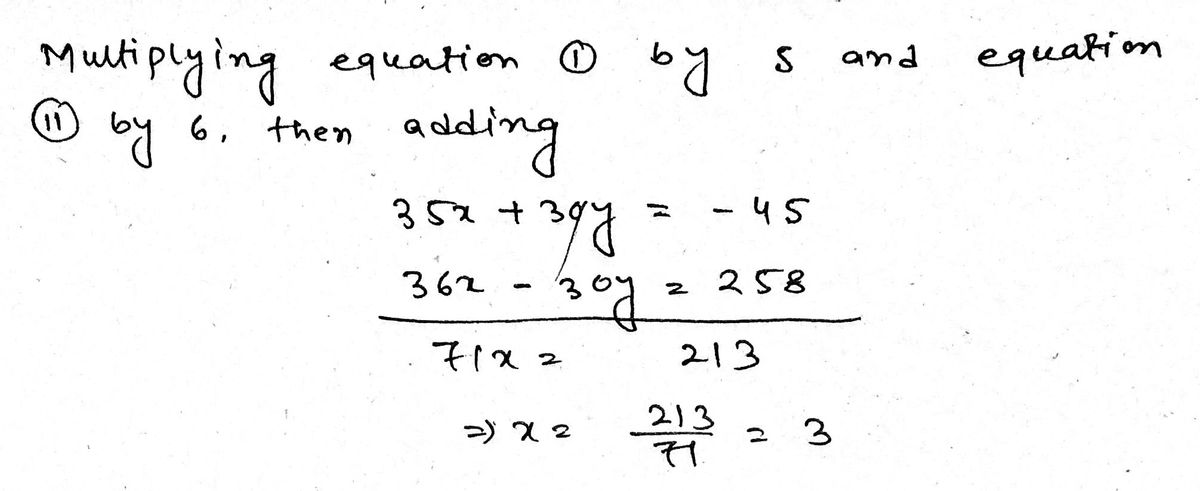 Multiplying equation (i) by 5 and equation
(ii) by 6, then adding
35x + 30y = - 45
36x - 30y = 258
71x = 213
⇒ x = 213/71 = 3